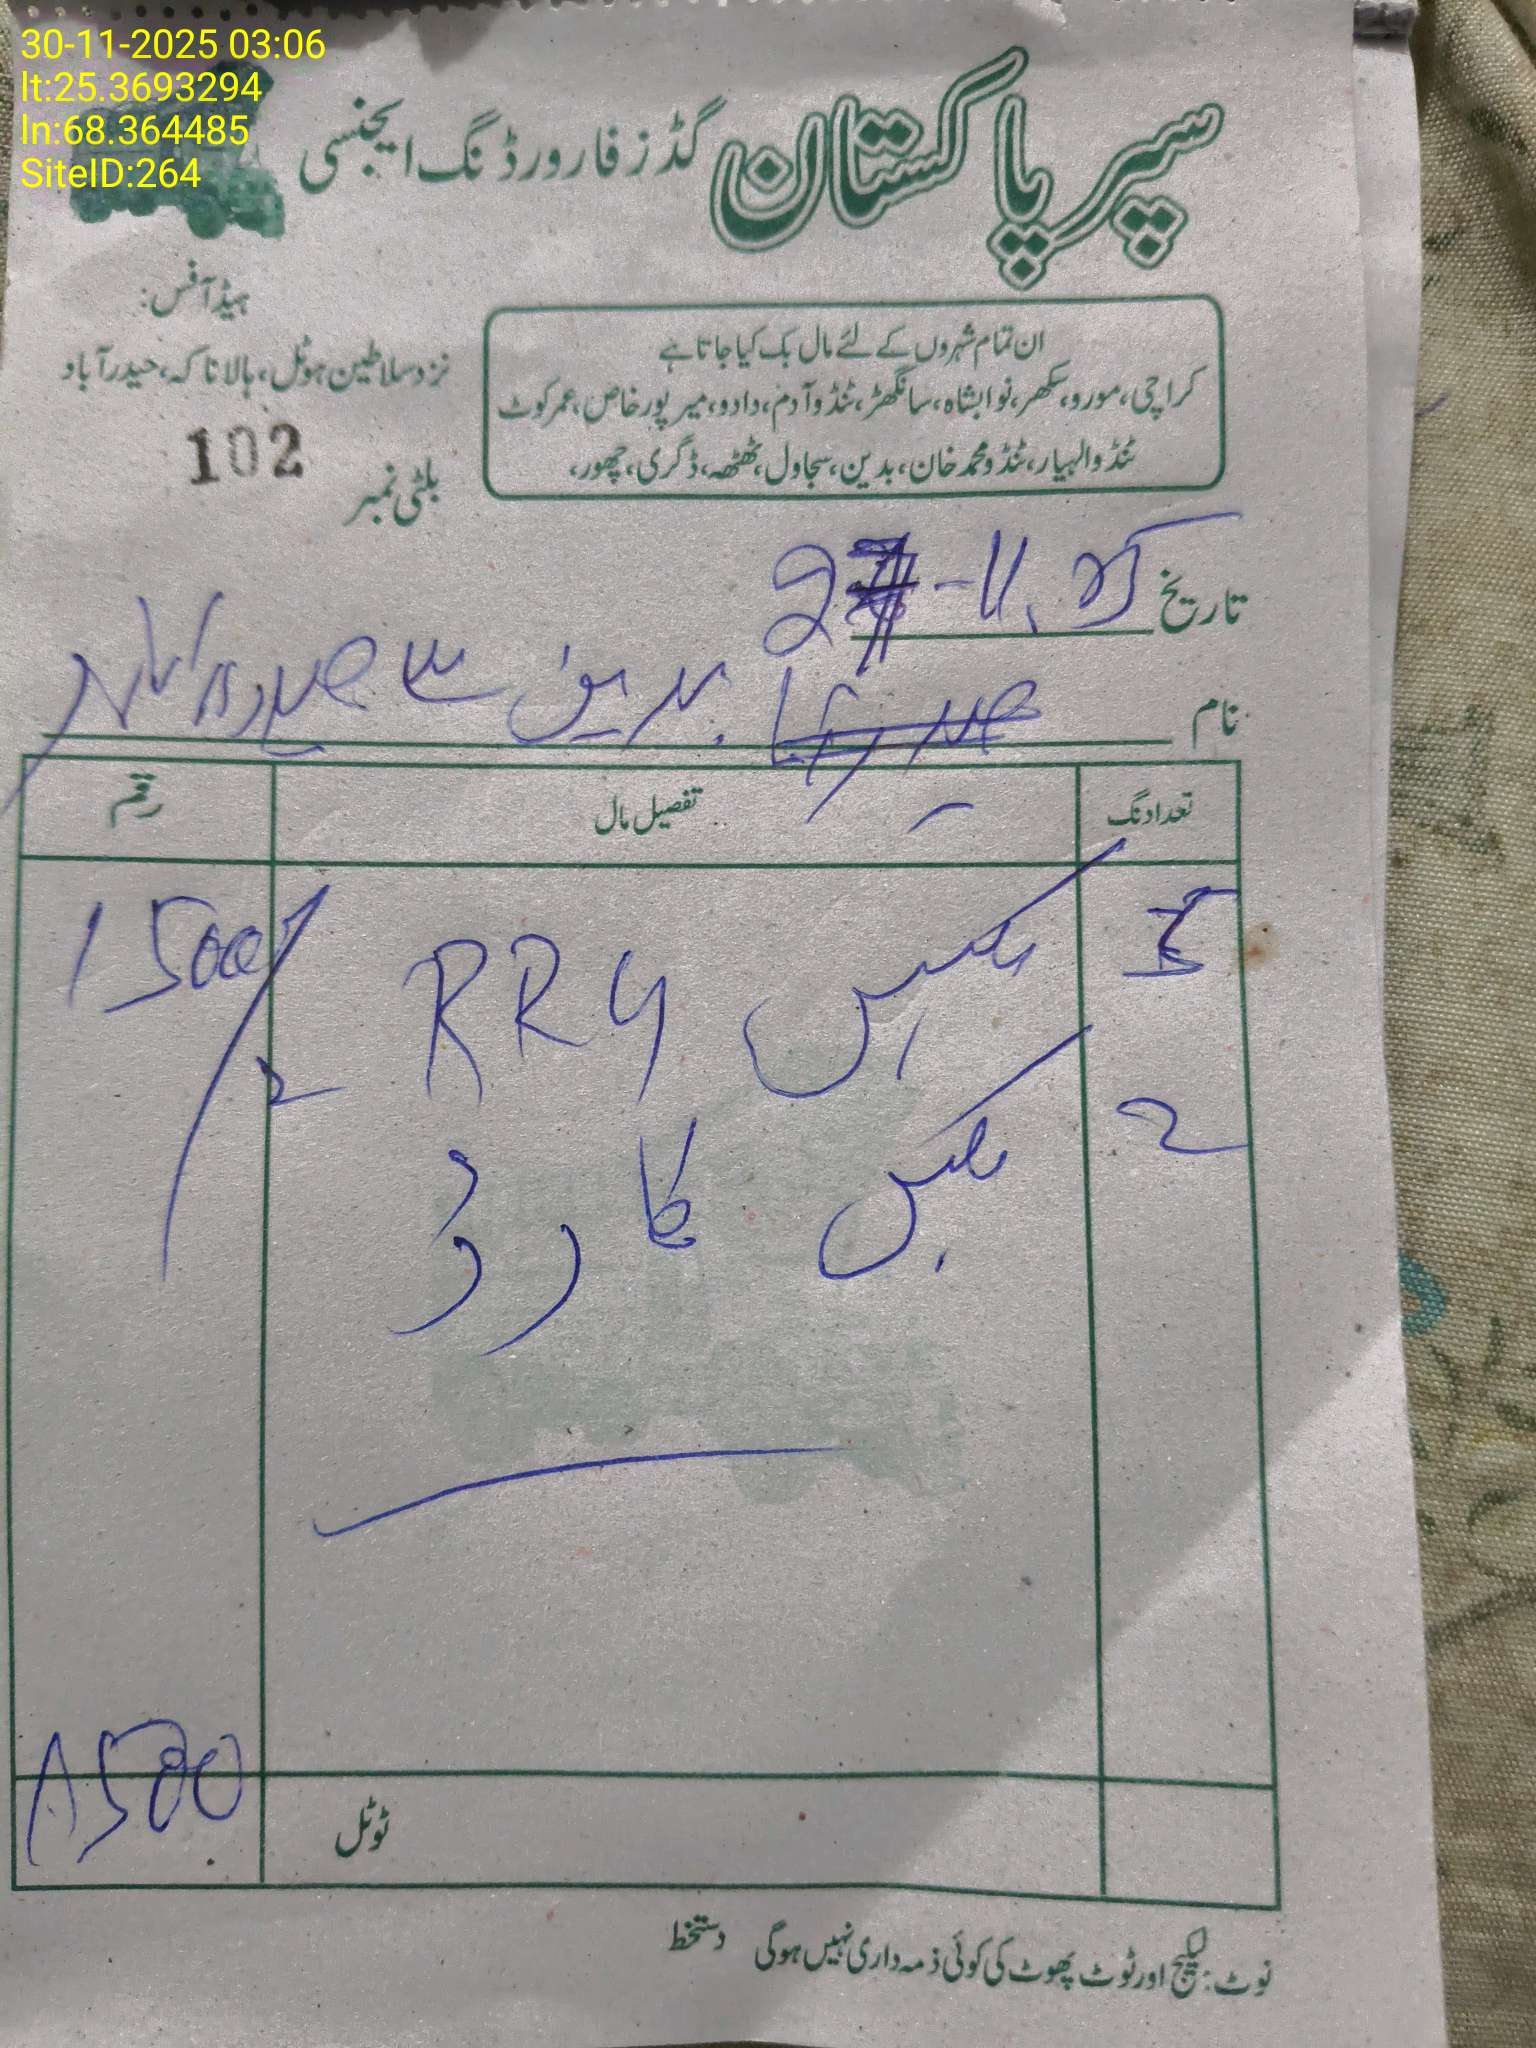 30-11-2025 03:06
lt:25.3693294
ln:68.364485
SiteID:264
سپر پاکستان گڈز فارورڈنگ ایجنسی
ہیڈ آفس:
نزد سلاطین ہوٹل، ہالا ناکہ، حیدرآباد
ان تمام شہروں کے لئے مال بک کیا جاتا ہے
کراچی، مورو، سکھر، نوابشاہ، سانگھڑ، ٹنڈوآدم، دادو، میرپورخاص، عمرکوٹ
ٹنڈوالہیار، ٹنڈومحمدخان، بدین، سجاول، ٹھٹھہ، ڈگری، چھور،
بلٹی نمبر 102
تاریخ
نام بدین سے حیدرآباد
تعداد نگ تفصیل مال رقم
بکس RRU 1500/
2 بکس کارڈ
ٹوٹل 1500
نوٹ: لیکج اور ٹوٹ پھوٹ کی کوئی ذمہ داری نہیں ہوگی دستخط